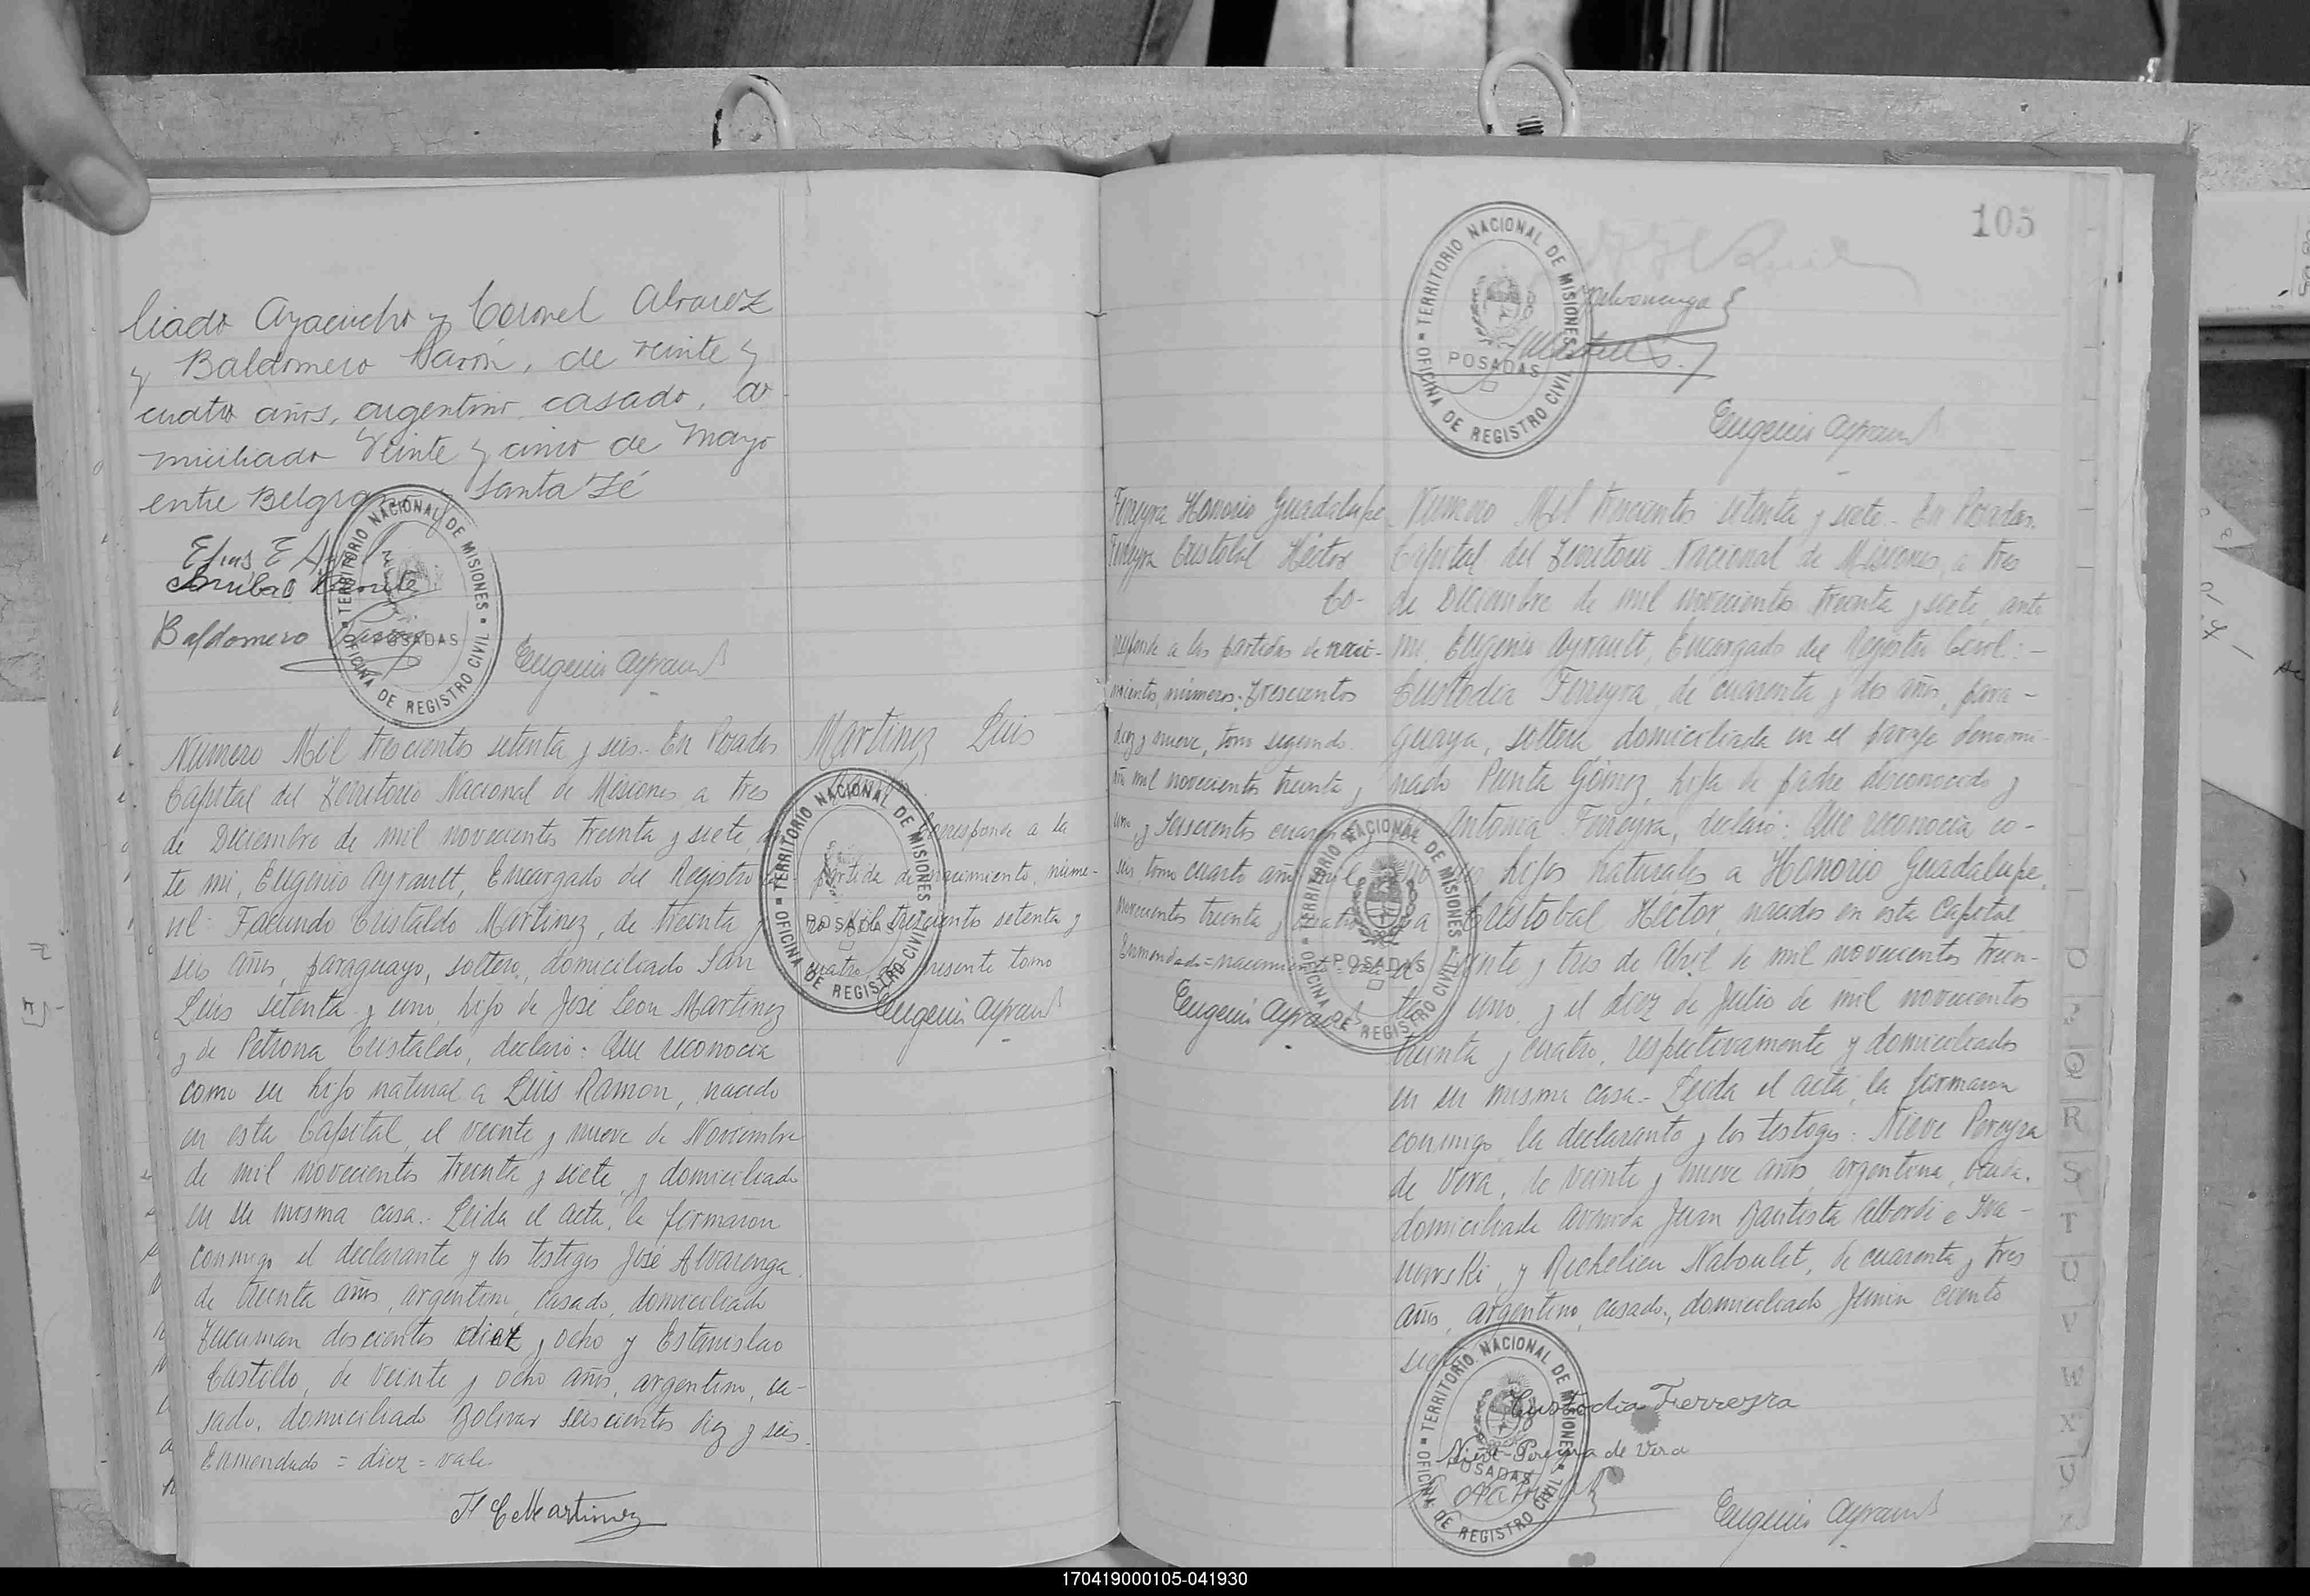 liado Ayacucho y Coronel Alvarez
y Baldomero Pavón, de veinte y
cuatro años, argentino, casado, do
miciliado Veinte y cinco de Mayo
entre Belgrano y Santa Fé
Baldomero
Eugenio Ayrault
TERRITORIO NACIONAL DE MISIONES
POSADAS
OFICINA DE REGISTRO CIVIL
Numero Mil trescientos setenta y seis.- En Posadas
Capital del Territorio Nacional de Misiones, a tres
de Diciembre de mil novecientos treinta y siete, an
te mi, Eugenio Ayrault, Encargado del Registro
vil: Facundo Cristaldo Martinez, de treinta y
seis años, paraguayo, soltero, domiciliado San
Luis setenta y uno, hijo de José Leon Martinez
y de Petrona Cristaldo, declaró: Que reconocia
como su hijo natural a Luis Ramon, nacido
en esta Capital, el veinte y nueve de Noviembre
de mil novecientos treinta y siete, y domiciliado
en su misma casa.- Leida el acta, la firmaron
conmigo el declarante y los testigos José Alvarenga
de treinta años, argentino, casado, domiciliado
Tucuman doscientos diez y ocho y Estanislao
Castillo, de veinte y ocho años, argentino, ca-
sado, domiciliado Bolivar seiscientos diez y seis.
Enmendado = diez = vale.
F C Martinez
Martinez Luis
Ramón
Corresponde a la
partida de nacimiento, núme-
ro mil trescientos setenta y
cuatro, del presente tomo
Eugenio Ayrault
TERRITORIO NACIONAL DE MISIONES
POSADAS
OFICINA DE REGISTRO CIVIL
105
TERRITORIO NACIONAL DE MISIONES
POSADAS
OFICINA DE REGISTRO CIVIL
Alvarenga
Eugenio Ayrault
Ferreyra Honorio Guadalupe
Ferreyra Cristobal Héctor
Co-
rresponde a las partidas de naci-
mientos, números: Trescientos
diez y nueve, tomo segundo
año mil novecientos treinta y
uno, y Seiscientos cuarenta y
seis, tomo cuarto año mil
novecientos treinta y cuatro
Enmendado = nacimientos = vale
Eugenio Ayrault
TERRITORIO NACIONAL DE MISIONES
POSADAS
OFICINA DE REGISTRO CIVIL
Numero Mil trescientos setenta y siete.- En Posadas.
Capital del Territorio Nacional de Misiones, a tres
de Diciembre de mil novecientos treinta y siete, ante
mi, Eugenio Ayrault, Encargado del Registro Civil:-
Custodia Ferreyra, de cuarenta y dos años, para-
guaya, soltera, domiciliada en el paraje denomi-
nado Punta Gómez, hija de padre desconocido y
de Antonia Ferreyra, declaró: Que reconocia co-
mo sus hijos naturales a Honorio Guadalupe,
y a Cristobal Héctor, nacidos en esta Capital
el veinte y tres de Abril de mil novecientos trein-
ta y uno, y el diez de Julio de mil novecientos
treinta y cuatro, respectivamente y domiciliados
en su misma casa.- Leida el acta, la firmaron
conmigo la declarante y los testigos: Nieve Pereyra
de Vera, de veinte y nueve años, argentina, viuda,
domiciliada avenida Juan Bautista Alberdi e Iva-
nowski, y Richelieu Naboulet, de cuarenta y tres
años, argentino, casado, domiciliado Junin ciento
Custodia Ferreyra
Nieve Pereyra de Vera
Eugenio Ayrault
TERRITORIO NACIONAL DE MISIONES
POSADAS
OFICINA DE REGISTRO CIVIL
O
P
Q
R
S
T
U
V
W
X
Y
170419000105-041930